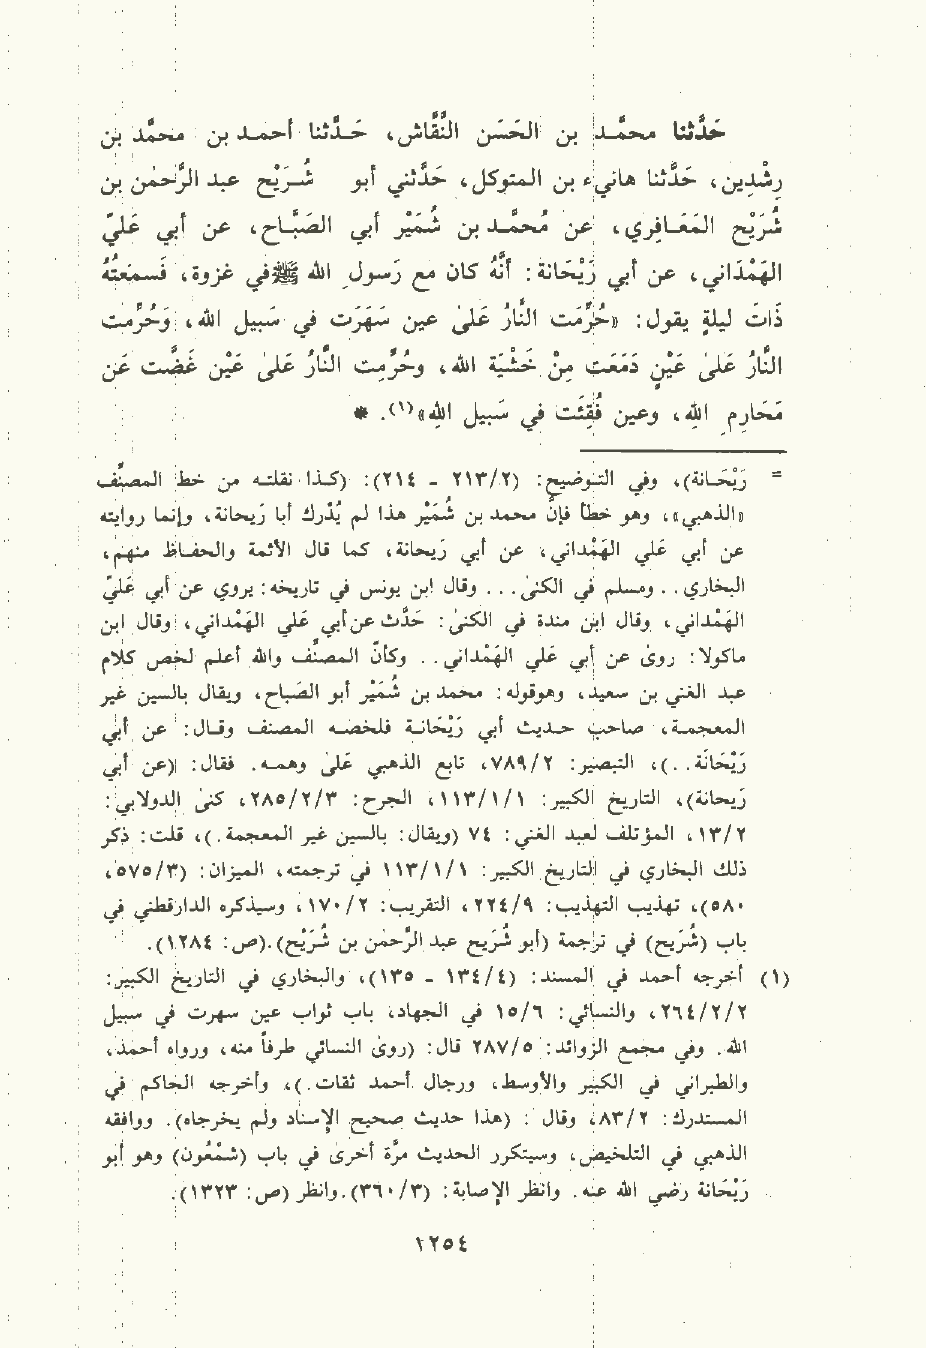 حَدَّثنا محمَّـد بن الحَسَن النَّقَّاش، حَـدَّثنا أحمـد بن محمَّد بن
رِشْدِين، حَدَّثنا هانىء بن المتوكل، حَدَّثني أبو شُـرَيْح عبد الرَّحمٰن بن
شُرَيْح المَعَـافِري، عن مُحمَّـد بن شُمَيْر أبي الصَبَّـاح، عن أبي عَليّ
الهَمْدَاني، عن أبي رَيْحَانة: أنَّهُ كان مع رَسول الله ﷺ في غزوة، فَسمعتُهُ
ذَاتَ ليلةٍ يقول: «حُرِّمَت النَّارُ عَلىٰ عين سَهَرَت في سَبيل الله، وَحُرِّمت
النَّارُ عَلىٰ عَيْنٍ دَمَعَت مِنْ خَشْيَة الله، وحُرِّمِت النَّارُ عَلىٰ عَيْن غَضَّت عَن
مَحَارِمِ اللهِ، وعين فُقِئَت في سَبيل اللهِ»(١). *
= رَيْحَـانة)، وفي التـوضيح: (٢/٢١٣ - ٢١٤): (كـذا نقلتـه من خط المصنَّف
«الذهبي»، وهو خطأ فإنَّ محمد بن شُمَيْر هذا لم يُدْرك أبا رَيحانة، وإنما روايته
عن أبي عَلي الهَمْداني، عن أبي رَيحانة، كما قال الأئمة والحفـاظ منهم،
البخاري.. ومسلم في الكنىٰ... وقال ابن يونس في تاريخه: يروي عن أبي عَليّ
الهَمْداني، وقال ابن مندة في الكنىٰ: حَدَّث عن أبي عَلي الهَمْداني، وقال ابن
ماكولا: روىٰ عن أبي عَلي الهَمْداني.. وكأنّ المصنِّف والله أعلم لخص كلام
عبد الغني بن سعيد، وهوقوله: محمد بن شُمَيْر أبو الصَباح، ويقال بالسين غير
المعجمـة، صاحب حـديث أبي رَيْحَانـة فلخصـه المصنف وقـال: عن أبي
رَيْحَانَة..)، التبصير: ٢/٧٨٩، تابع الذهبي عَلىٰ وهمـه. فقال: (عن أبي
رَيحانة)، التاريخ الكبير: ١/١/١١٣، الجرح: ٣/٢/٢٨٥، كنىٰ الدولابي:
٢/١٣، المؤتلف لعبد الغني: ٧٤ (ويقال: بالسين غير المعجمة.)، قلت: ذكر
ذلك البخاري في التاريخ الكبير: ١/١/١١٣ في ترجمته، الميزان: (٣/٥٧٥،
٥٨٠)، تهذيب التهذيب: ٩/٢٢٤، التقريب: ٢/١٧٠، وسيذكره الدارقطني في
باب (شُرَيح) في ترجمة (أبو شُرَيح عبد الرَّحمٰن بن شُرَيْح).(ص: ١٢٨٤).
(١) أخرجه أحمد في المسند: (٤/١٣٤ - ١٣٥)، والبخاري في التاريخ الكبير:
٢/٢/٢٦٤، والنسائي: ٦/١٥ في الجهاد، باب ثواب عين سهرت في سبيل
الله. وفي مجمع الزوائد: ٥/٢٨٧ قال: (روىٰ النسائي طرفاً منه، ورواه أحمد،
والطبراني في الكبير والأوسط، ورجال أحمد ثقات.)، وأخرجه الحاكم في
المستدرك: ٢/٨٣، وقال: (هذا حديث صحيح الإسناد ولم يخرجاه). ووافقه
الذهبي في التلخيص، وسيتكرر الحديث مرَّة أخرىٰ في باب (شَمْعُون) وهو أبو
رَيْحَانة رضي الله عنه. وانظر الإصابة: (٣/٣٦٠).وانظر (ص: ١٣٢٣).
١٢٥٤